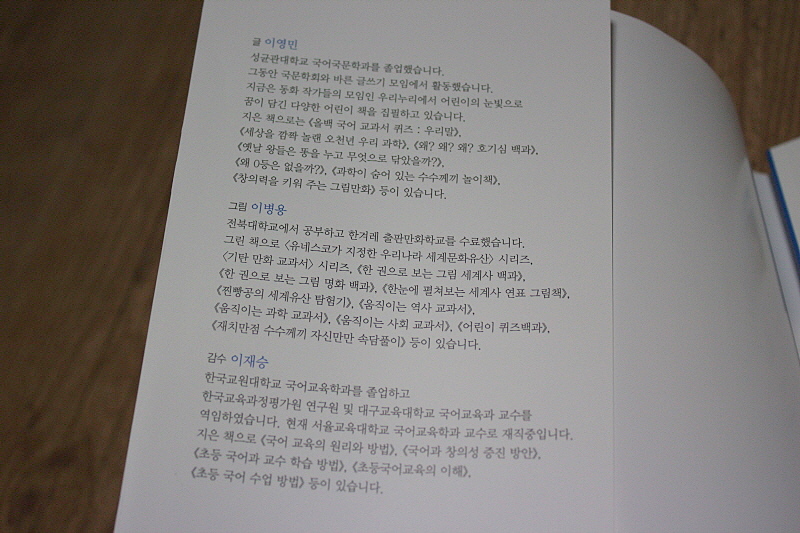 글 이영민
성균관대학교 국어국문학과를 졸업했습니다.
그동안 국문학회와 바른 글쓰기 모임에서 활동했습니다.
지금은 동화 작가들의 모임인 우리누리에서 어린이의 눈빛으로
꿈이 담긴 다양한 어린이 책을 집필하고 있습니다.
지은 책으로는 《올백 국어 교과서 퀴즈 : 우리말》,
《세상을 깜짝 놀랜 오천년 우리 과학》, 《왜? 왜? 왜? 호기심 백과》,
《옛날 왕들은 똥을 누고 무엇으로 닦았을까?》,
《왜 0등은 없을까?》, 《과학이 숨어 있는 수수께끼 놀이책》,
《창의력을 키워 주는 그림만화》 등이 있습니다.
그림 이병용
전북대학교에서 공부하고 한겨레 출판만화학교를 수료했습니다.
그린 책으로 〈유네스코가 지정한 우리나라 세계문화유산〉 시리즈,
〈기탄 만화 교과서〉 시리즈, 《한 권으로 보는 그림 세계사 백과》,
《한 권으로 보는 그림 명화 백과》, 《한눈에 펼쳐보는 세계사 연표 그림책》,
《찐빵공의 세계유산 탐험기》, 《움직이는 역사 교과서》,
《움직이는 과학 교과서》, 《움직이는 사회 교과서》, 《어린이 퀴즈백과》,
《재치만점 수수께끼 자신만만 속담풀이》 등이 있습니다.
감수 이재승
한국교원대학교 국어교육학과를 졸업하고
한국교육과정평가원 연구원 및 대구교육대학교 국어교육과 교수를
역임하였습니다. 현재 서울교육대학교 국어교육학과 교수로 재직중입니다.
지은 책으로 《국어 교육의 원리와 방법》, 《국어과 창의성 증진 방안》,
《초등 국어과 교수 학습 방법》, 《초등국어교육의 이해》,
《초등 국어 수업 방법》 등이 있습니다.